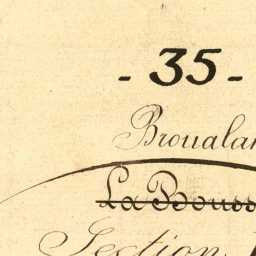 - 35 -
Broualan
La Bouss
Section